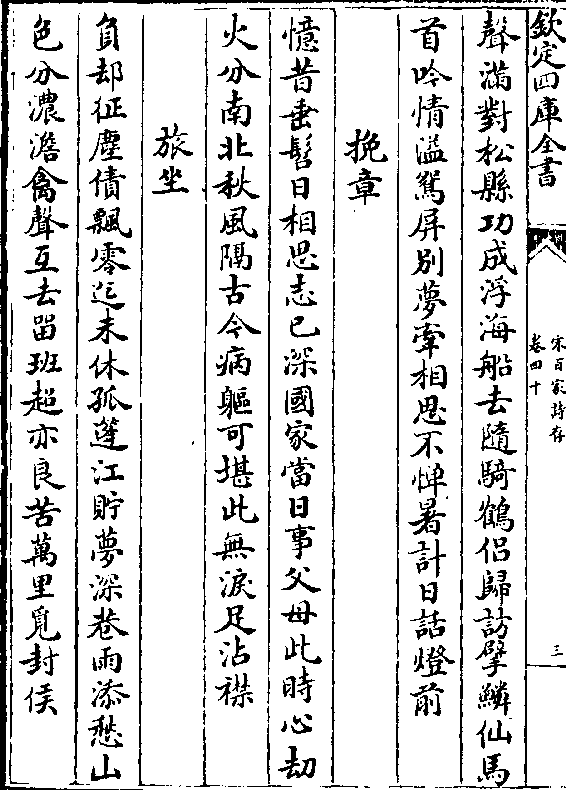 欽定四庫全書
宋百家詩存
卷四十
三
聲滿對松縣功成浮海船去隨騎鶴侶歸訪擘鱗仙馬
首吟情溢鴛屏別夢牽相思不憚暑計日話燈前
挽章
憶昔垂髫日相思志已深國家當日事父母此時心劫
火分南北秋風隔古今病軀可堪此無淚足沾襟
旅坐
負却征塵債飄零迄未休孤篷江貯夢深巷雨添愁山
色分濃澹禽聲互去留班超亦良苦萬里覓封侯